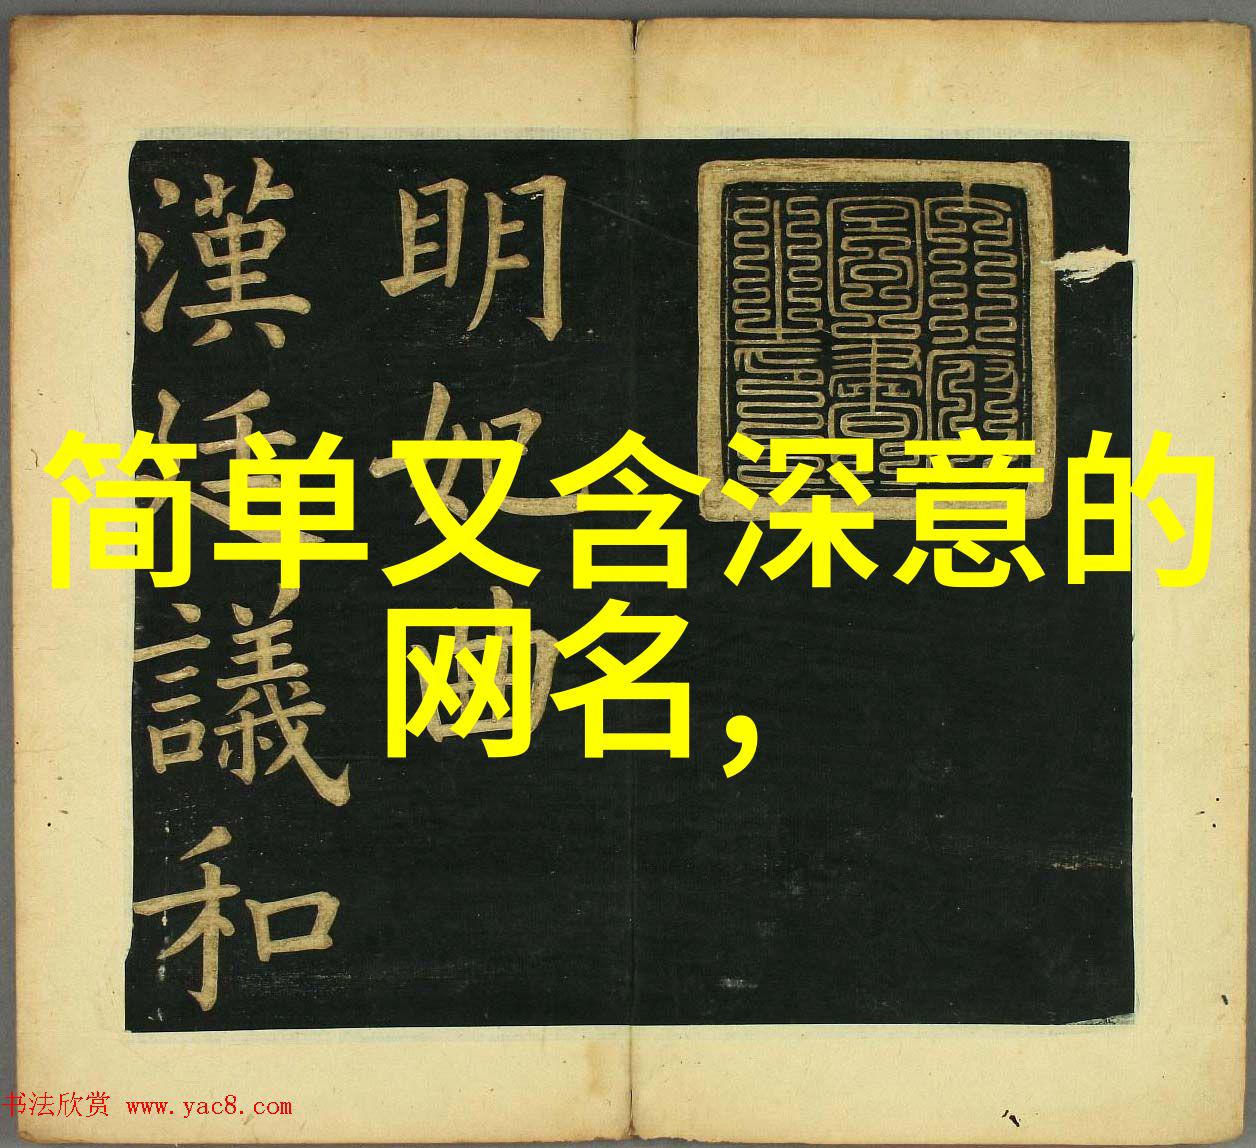 简单又含深意的
网名,
明妃曲
漢廷議和
书法欣赏 www.yac8.com